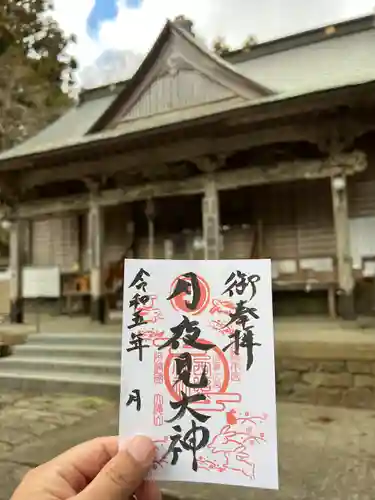 御奉拝
月夜見大神
令和五年
月